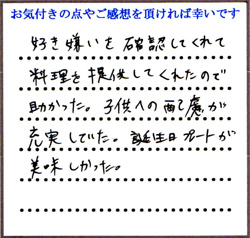 お気付きの点やご感想を頂ければ幸いです
好き嫌いを確認してくれて
料理を提供してくれたので
助かった。子供への配慮が
充実していた。誕生日プレートが
美味しかった。